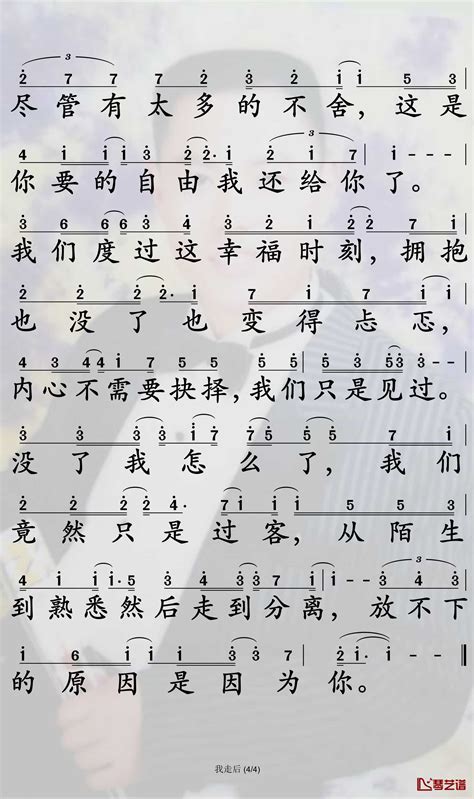 3
2 7 7 7 2 3 2 i i 5 3
尽管有太多的不舍，这是
3
4 i i i 3 2 2· i i 7 | i - - - |
你要的自由我还给你了。
3 6 6 6 3 7 3 2 i 2 2 7 i
我们度过这幸福时刻，拥抱
i 2 i 2 2· i i 7 i i - |
也没了也变得忐忑，
4 3 4 4 i 7 5 5 5 5 | 5 3 5 5 3 3 - |
内心不需要抉择，我们只是见过。
没了我怎么了，我们
2 2 2 2 4· 7 i i 5 5 5 3
竟然只是过客，从陌生
3
4 i i i· 5 3 4 3 2 i i i - - 3 4 3
到熟悉然后走到分离，放不下
i 6 i i i 3 3 7 | 2 i - - ‖
的原因是因为你。
我走后 (4/4)
琴艺谱